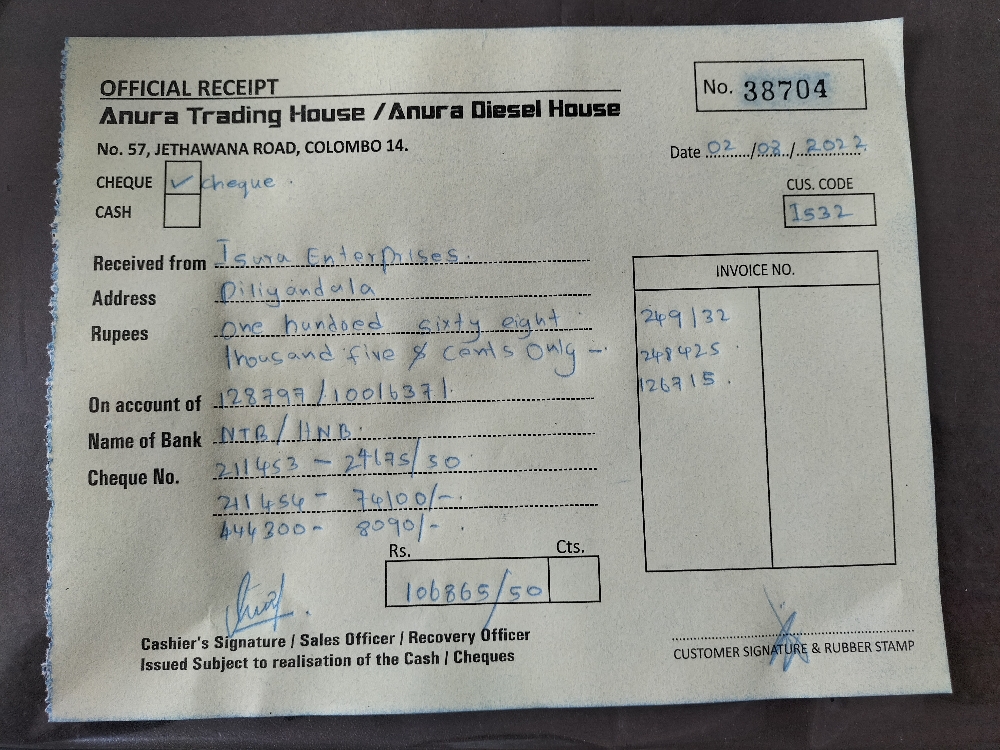 OFFICIAL RECEIPT
No. 38704
Anura Trading House / Anura Diesel House
No. 57, JETHAWANA ROAD, COLOMBO 14.
Date 02/03/2022
CHEQUE ✓ cheque
CASH
CUS. CODE
I532
Received from Isura Enterprises.
Address Piliyandala
Rupees One hundred sixty eight
thousand five & cents Only -.
INVOICE NO.
249132
248425
126715.
On account of 128797/10016371.
Name of Bank NTB/HNB.
Cheque No. 211453 - 24675/50
211454 - 74100/-.
444300 - 8090/-.
Rs. Cts.
106865/50
Cashier's Signature / Sales Officer / Recovery Officer
Issued Subject to realisation of the Cash / Cheques
CUSTOMER SIGNATURE & RUBBER STAMP